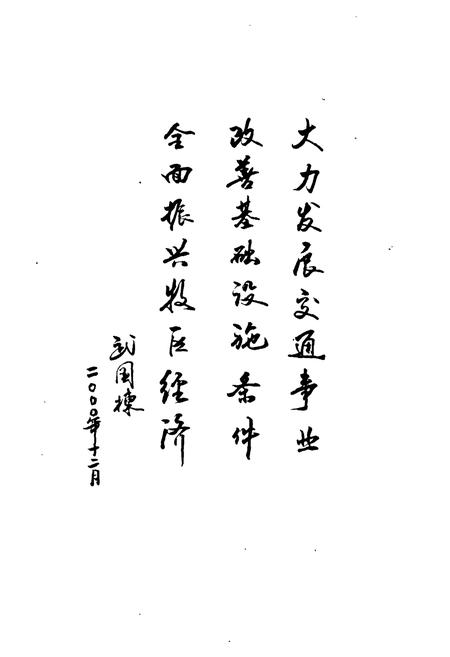 大力发展交通事业
改善基础设施条件
全面振兴牧区经济
武国栋
二000年十二月